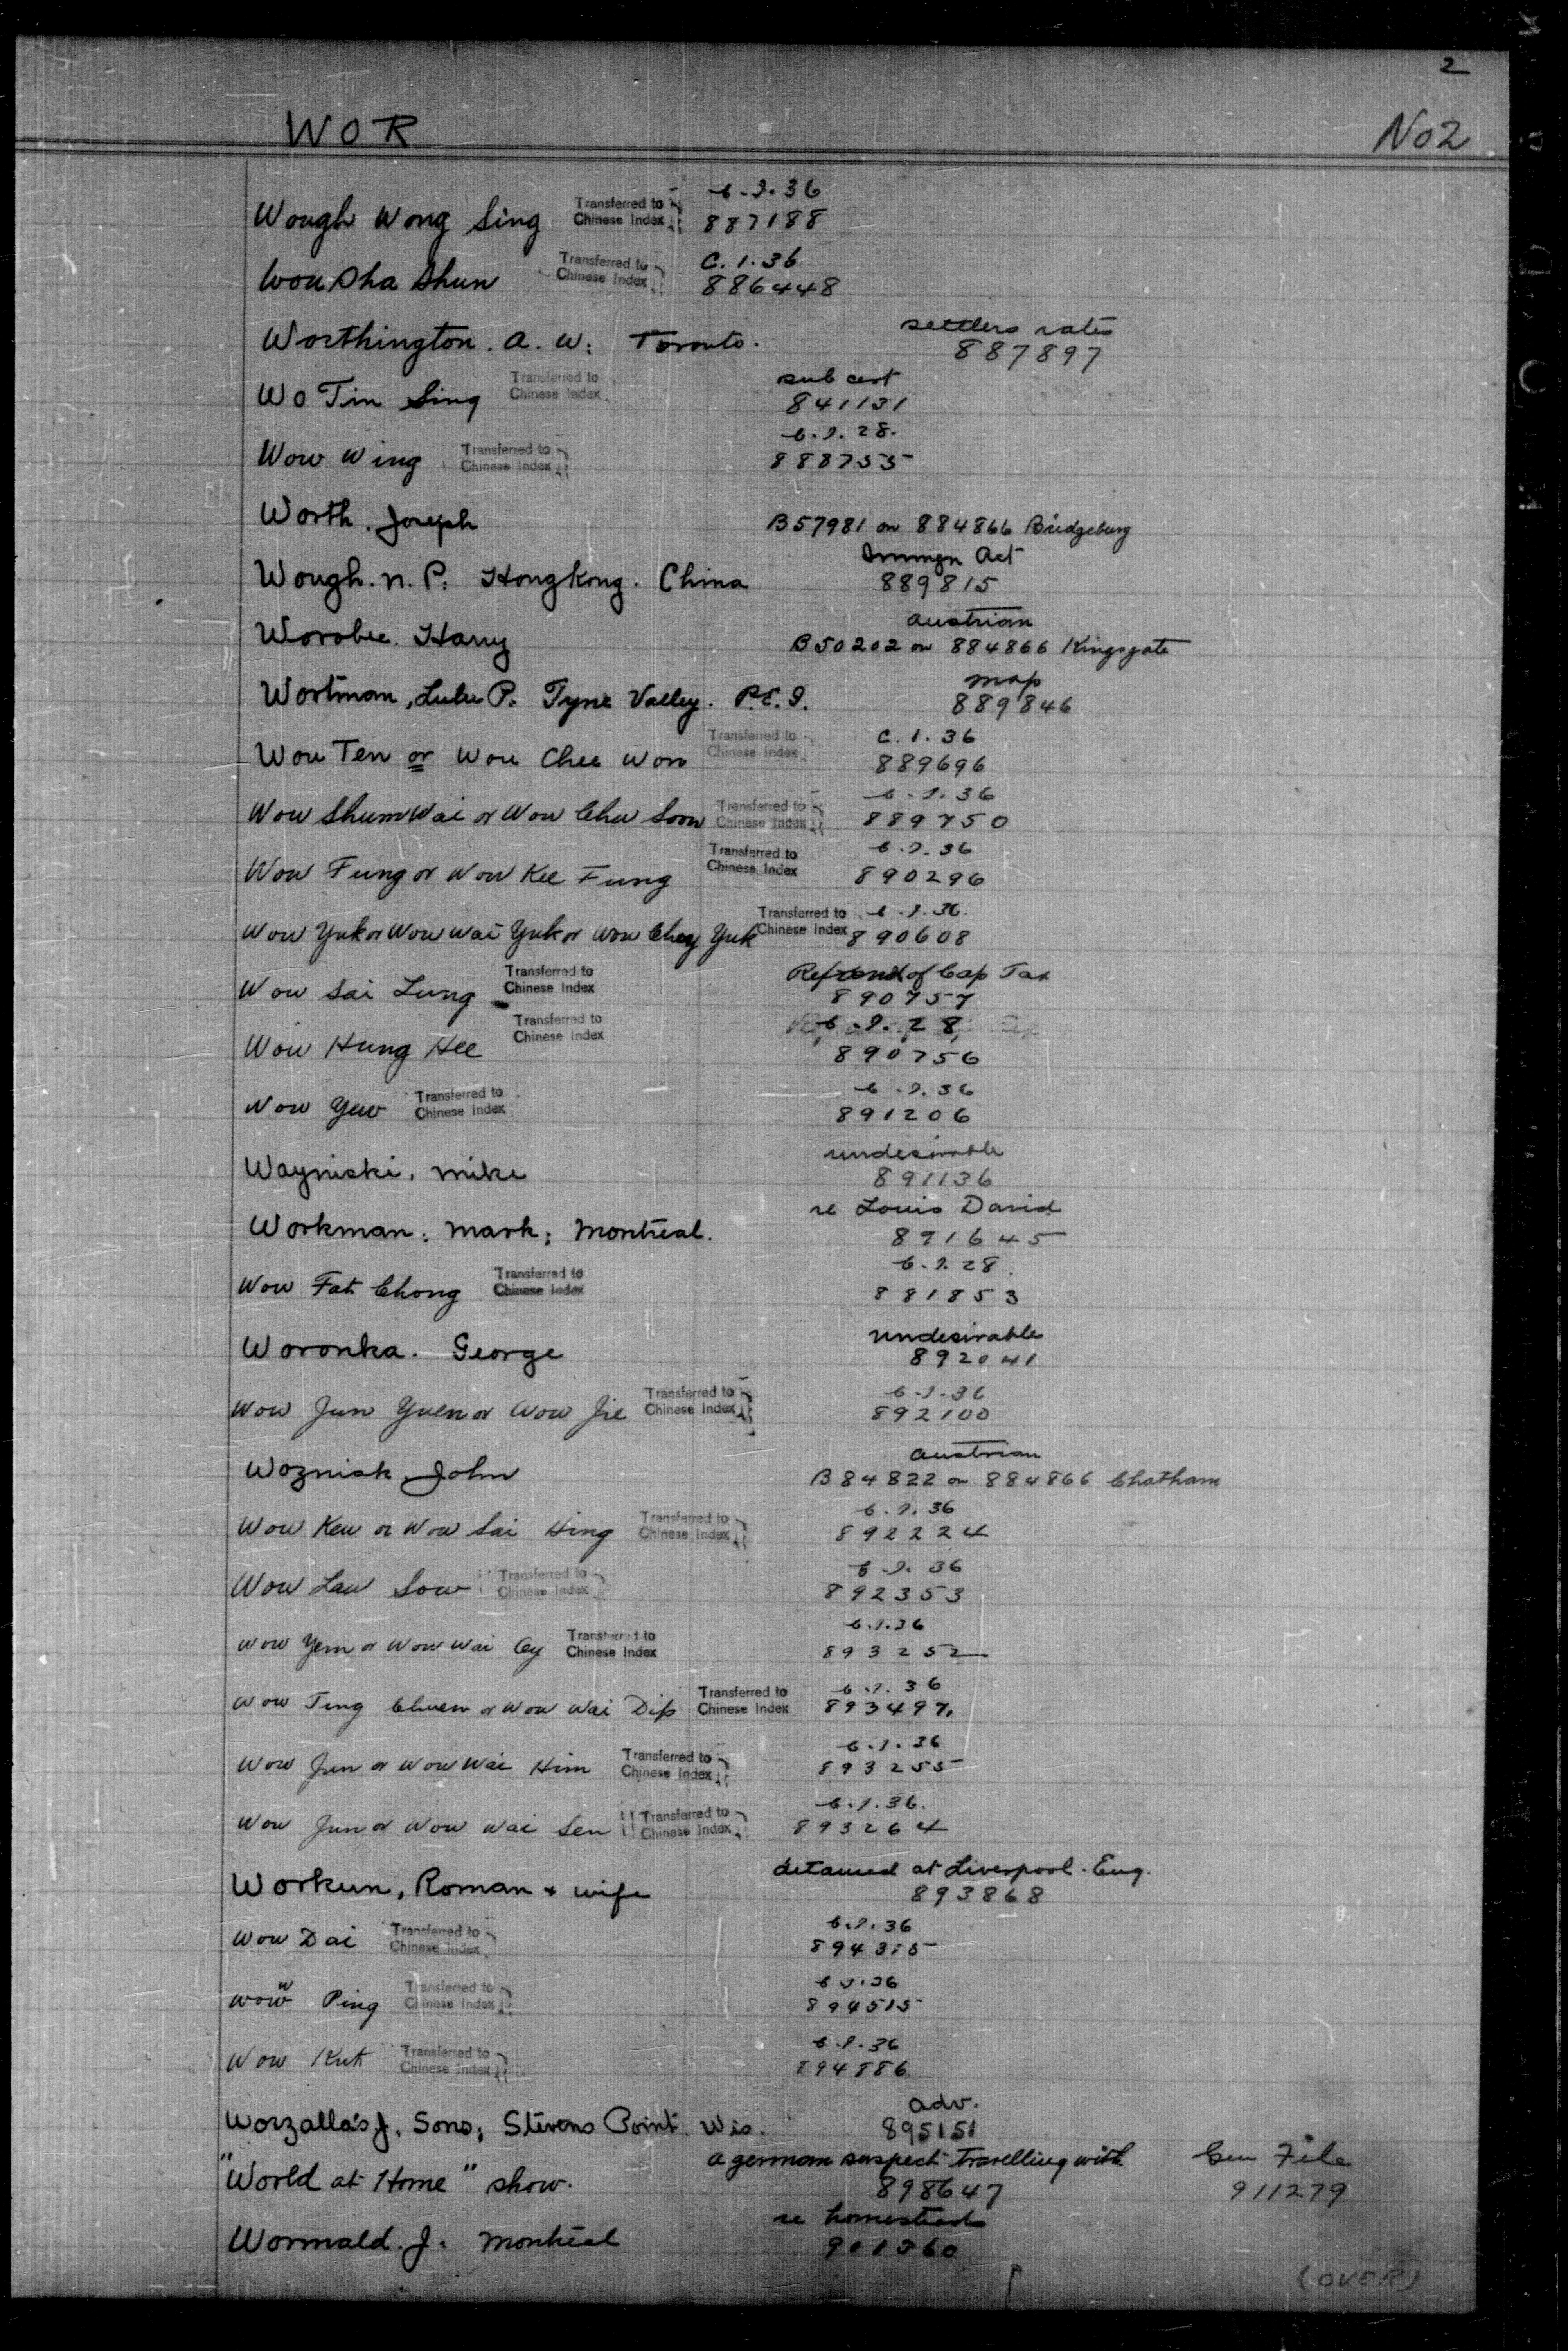 2
WOR No2
C.I.36
Wough Wong Sing Transferred to Chinese Index 887188
C.I.36
Wou Sha Shun Transferred to Chinese Index 886448
settlers rates
Worthington. A. W: Toronto. 887897
sub cert
Wo Tin Sing Transferred to Chinese Index 841131
C.I.28.
Wow Wing Transferred to Chinese Index 888755
Worth. Joseph B57981 on 884866 Bridgeburg
Immgn Act
Wough. N. P: Hongkong. China 889815
Austrian
Worobec. Harry B50202 on 884866 Kingsgate
map
Wortman, Lulu P: Tyne Valley. P.E.I. 889846
C.I.36
Wou Ten or Wou Chee Won Transferred to Chinese Index 889696
C.I.36
Wow Shum Wai or Wow Chu Soon Transferred to Chinese Index 889750
C.I.36
Wow Fung or Wow Kee Fung Transferred to Chinese Index 890296
C.I.36.
Wow Yuk or Wow Wai Yuk or Wow Chey Yuk Transferred to Chinese Index 890608
Refund of Cap Tax
Wow Sai Lung Transferred to Chinese Index 890757
C.I.28
Wow Hung Hee Transferred to Chinese Index 890756
C.I.36
Wow Yew Transferred to Chinese Index 891206
undesirable
Wayniski, Mike 891136
re Louis David
Workman: Mark; Montreal. 891645
C.I.28.
Wow Fat Chong Transferred to Chinese Index 881853
undesirable
Woronka. George 892041
C.I.36
Wow Jun Yuen or Wow Jie Transferred to Chinese Index 892100
Austrian
Wozniak, John B84822 on 884866 Chatham
C.I.36
Wow Kew or Wow Sai Hing Transferred to Chinese Index 892224
C.I.36
Wow Law Sow Transferred to Chinese Index 892353
C.I.36
Wow Yem or Wow Wai Cy Transferred to Chinese Index 893252
C.I.36
Wow Ting Chuen or Wow Wai Dip Transferred to Chinese Index 893497.
C.I.36
Wow Jun or Wow Wai Him Transferred to Chinese Index 893255
C.I.36.
Wow Jun or Wow Wai Sen Transferred to Chinese Index 893264
detained at Liverpool. Eng.
Workun, Roman & wife 893868
C.I.36
Wow Dai Transferred to Chinese Index 894315
C.I.36
Wow Ping Transferred to Chinese Index 894515
C.I.36
Wow Kut Transferred to Chinese Index 894886
adv.
Worzalla's J. Sons; Stevens Point. Wis. 895151
a german suspect travelling with Gen File
"World at Home" show. 898647 911279
re homestead
Wormald. J: Montreal 901360
(OVER)